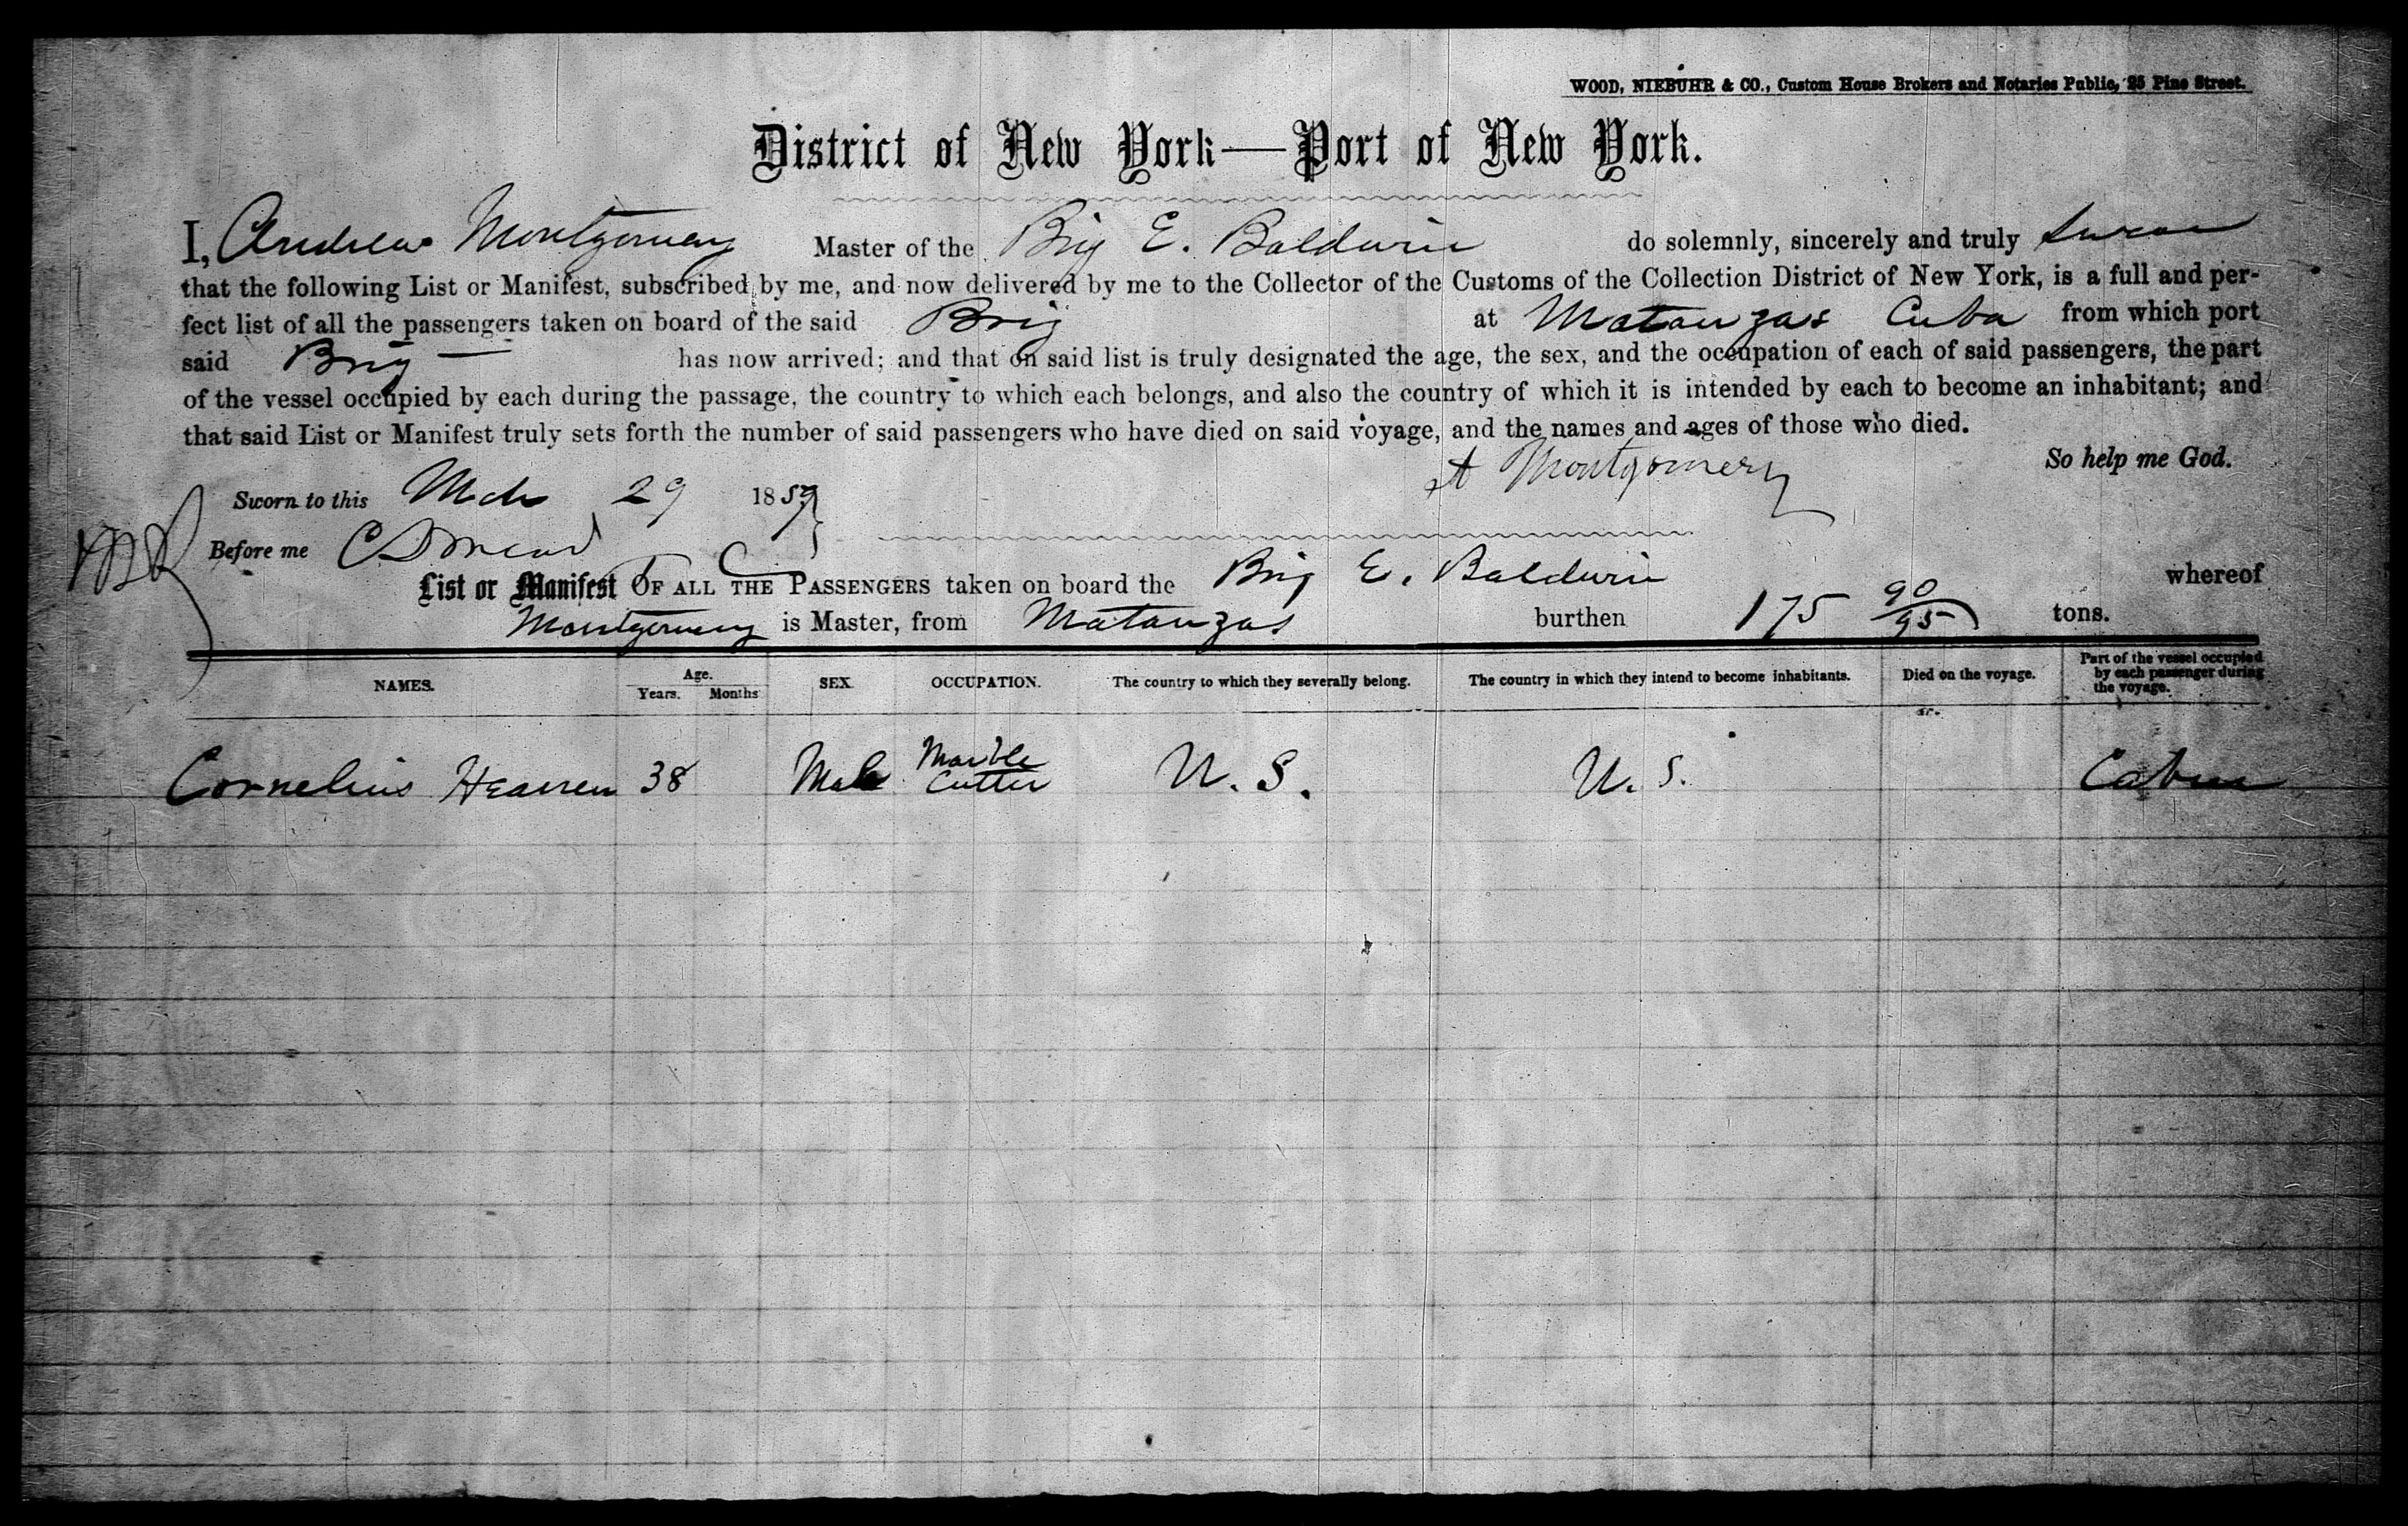 WOOD, NIEBUHR & CO., Custom House Brokers and Notaries Public, 25 Pine Street.
District of New York—Port of New York.
I, Andrew Montgomery Master of the Brig E. Baldwin do solemnly, sincerely and truly swear
that the following List or Manifest, subscribed by me, and now delivered by me to the Collector of the Customs of the Collection District of New York, is a full and per-
fect list of all the passengers taken on board of the said Brig at Matanzas Cuba from which port
said Brig — has now arrived; and that on said list is truly designated the age, the sex, and the occupation of each of said passengers, the part
of the vessel occupied by each during the passage, the country to which each belongs, and also the country of which it is intended by each to become an inhabitant; and
that said List or Manifest truly sets forth the number of said passengers who have died on said voyage, and the names and ages of those who died.
So help me God.
A Montgomery
Sworn to this Mch 29 1859
Before me
List or Manifest OF ALL THE PASSENGERS taken on board the Brig E. Baldwin whereof
Montgomery is Master, from Matanzas burthen 175 90/95 tons.
NAMES. Age. Years. Months SEX. OCCUPATION. The country to which they severally belong. The country in which they intend to become inhabitants. Died on the voyage. Part of the vessel occupied by each passenger during the voyage.
Cornelius 38 Male Marble Cutter U. S. U. S. Cabin